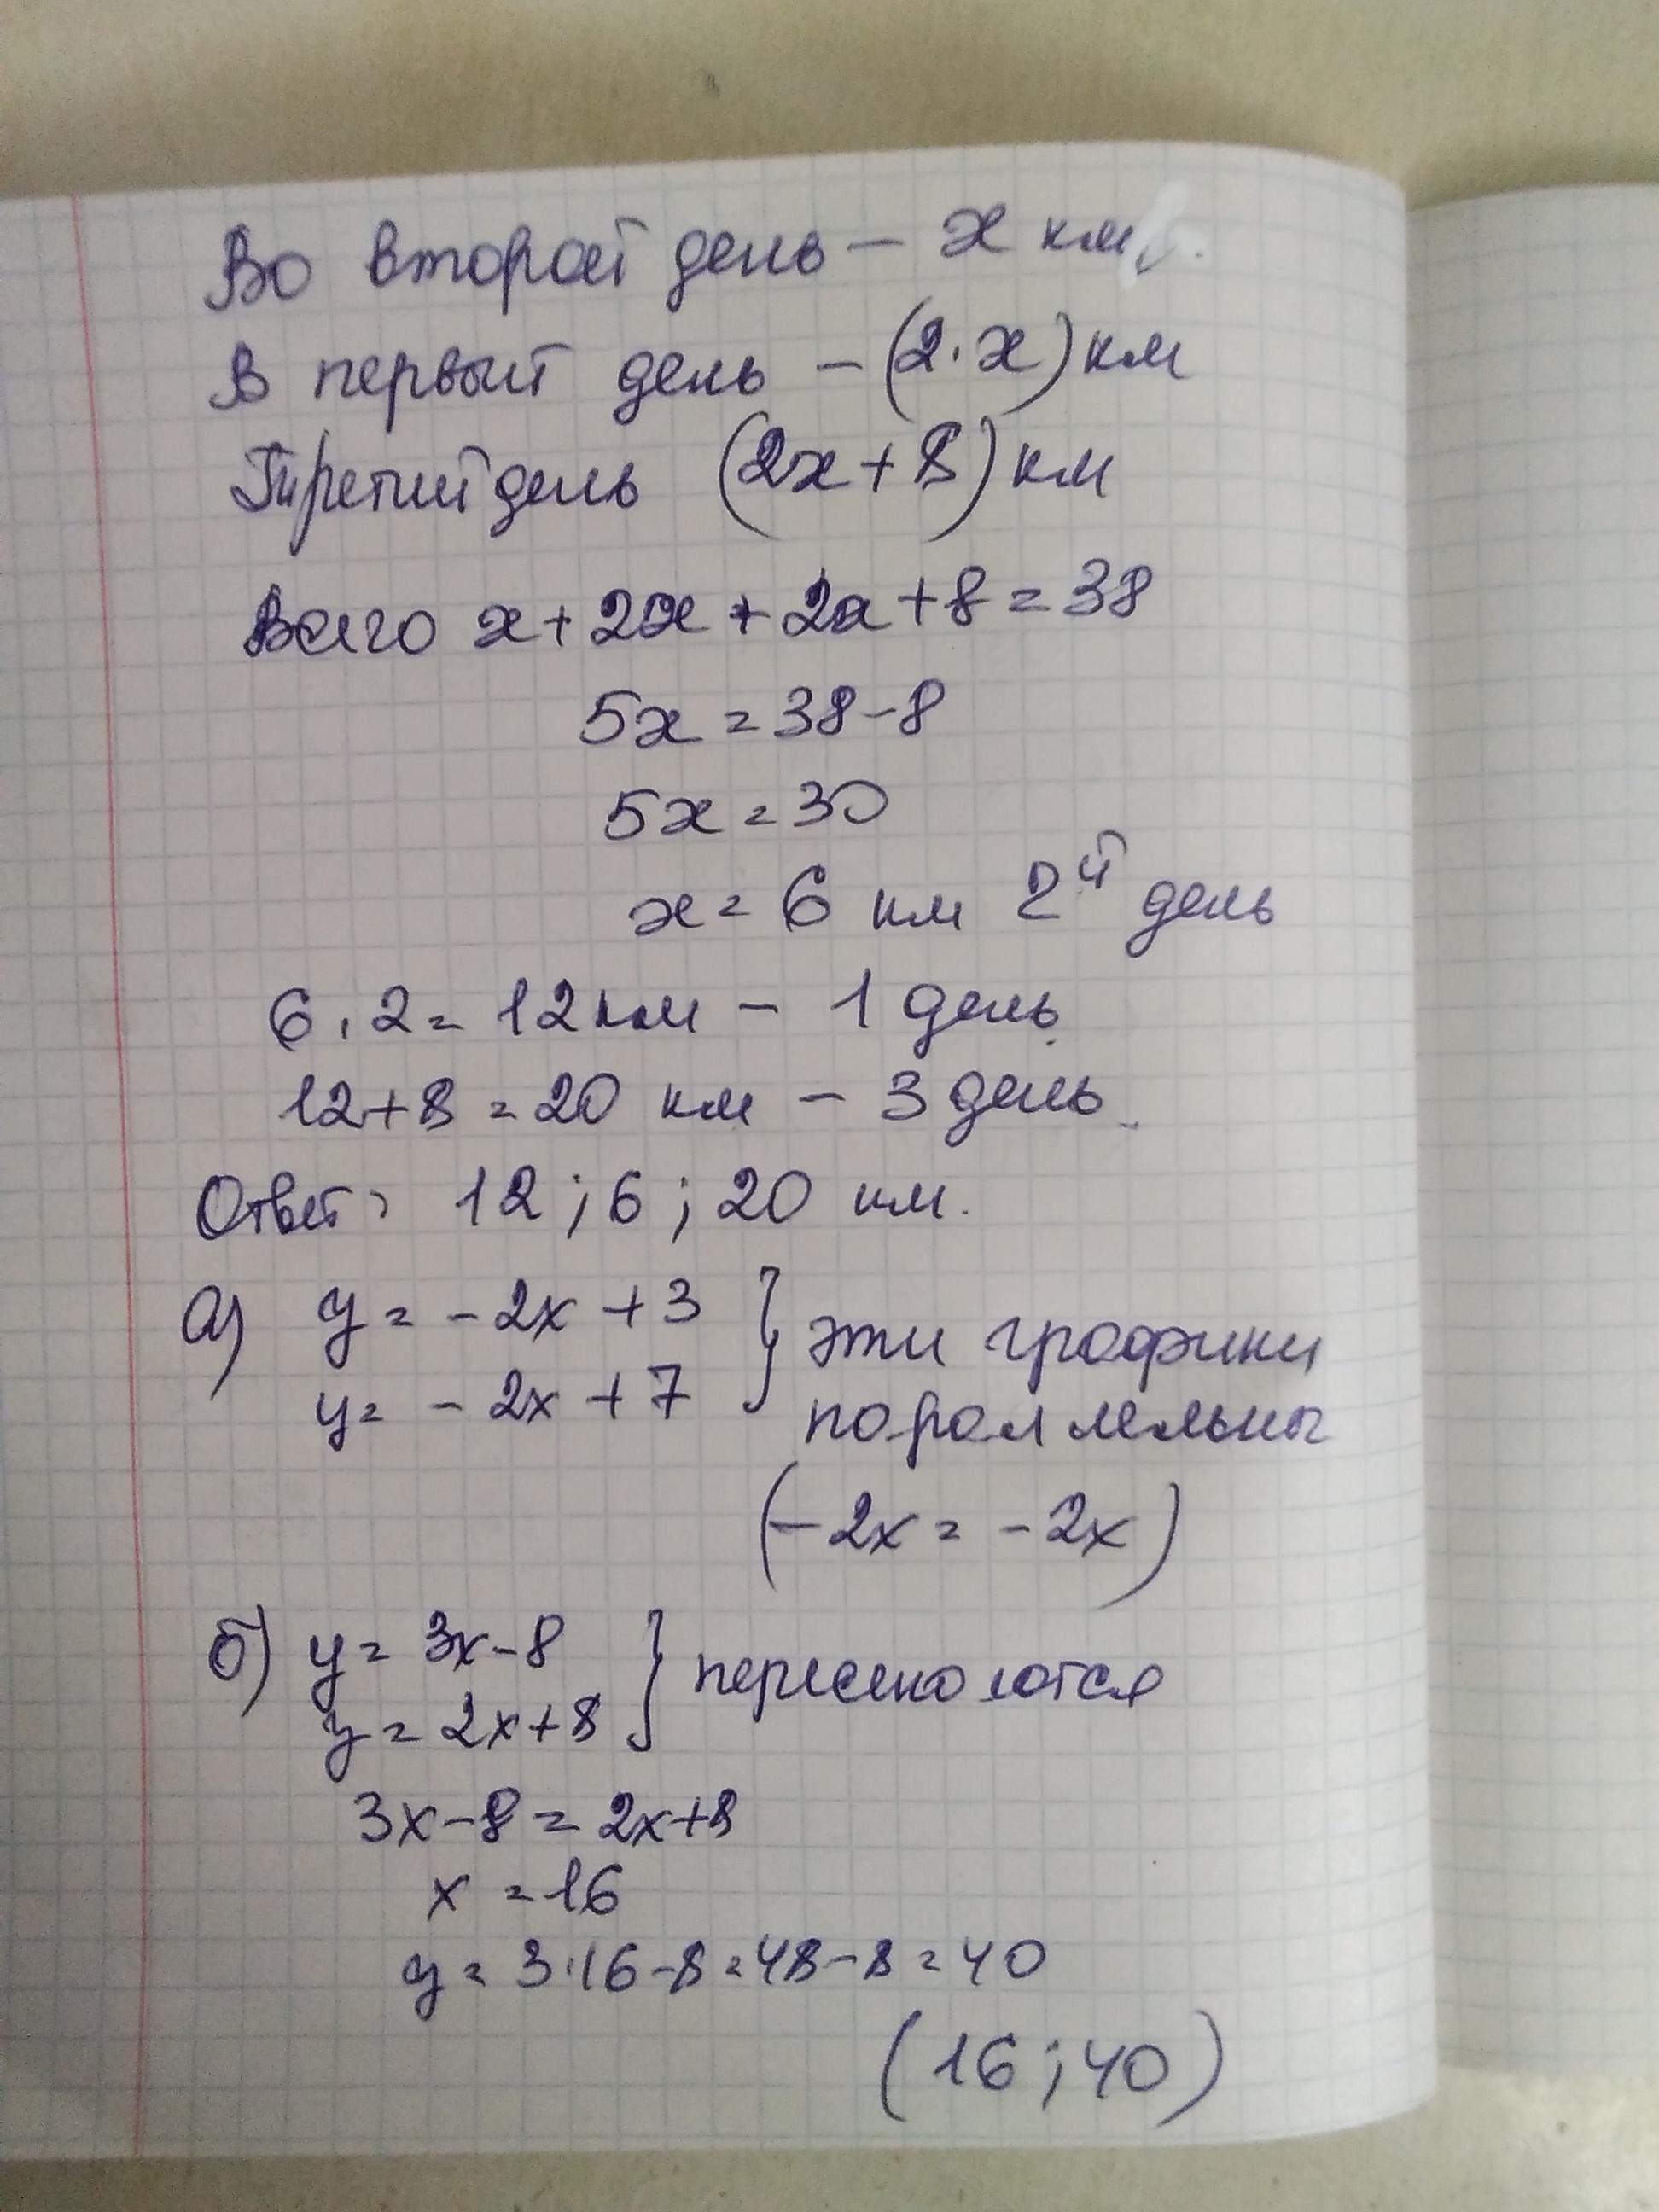 Во второй день – x км
В первый день – (2·x) км
Третий день (2x + 8) км
Всего x + 2x + 2x + 8 = 38
5x = 38 – 8
5x = 30
x = 6 км 2й день
6 · 2 = 12 км – 1 день
12 + 8 = 20 км – 3 день
Ответ: 12 ; 6 ; 20 км.
а) y = – 2x + 3 } эти графики
y = – 2x + 7 параллельны
(– 2x = – 2x)
б) y = 3x – 8 } пересекаются
y = 2x + 8
3x – 8 = 2x + 8
x = 16
y = 3·16 – 8 = 48 – 8 = 40
(16 ; 40)